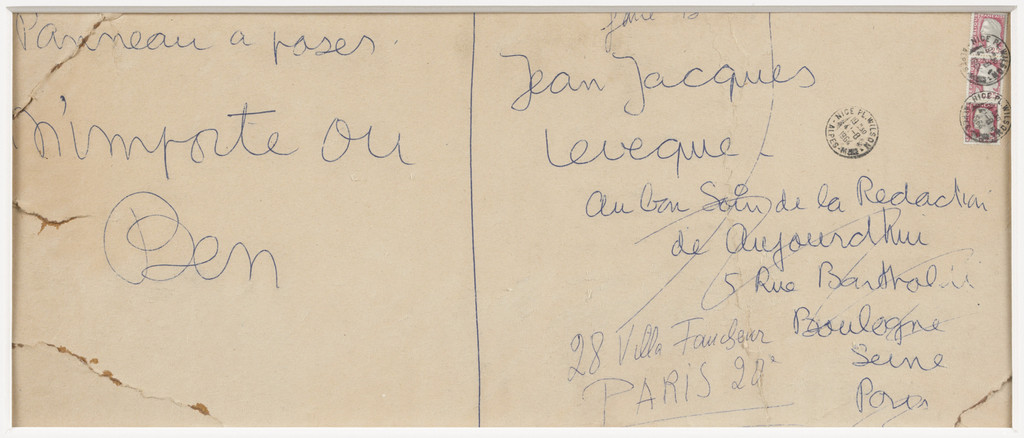 Panneau a poser.
N'importe ou
Ben
Jean Jacques
Leveque
au bon Soin de la Redaction
de Aujourdhui
5 Rue Bartholdi
Boulogne
Seine
Paris
28 Villa Faucheur
PARIS 20e
NICE PL. WILSON
ALPES-MMES